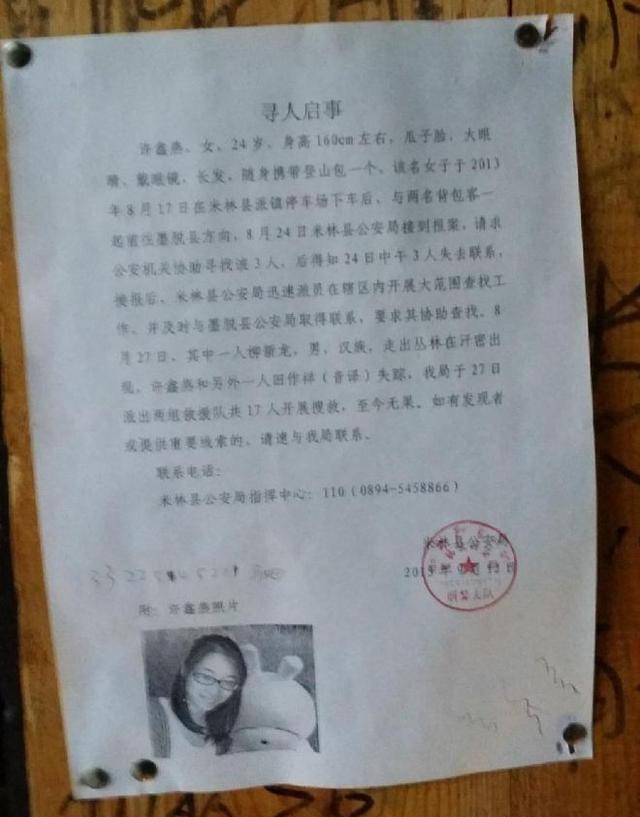 寻人启事
许鑫燕、女、24岁、身高160cm左右，瓜子脸，大眼
睛、戴眼镜、长发，随身携带登山包一个。该名女子于2013
年8月17日在米林县派镇停车场下车后，与两名背包客一
起前往墨脱县方向，8月24日米林县公安局接到报案，请求
公安机关协助寻找该3人，后得知24日中午3人失去联系，
接报后，米林县公安局迅速派员在辖区内开展大范围查找工
作、并及时与墨脱县公安局取得联系，要求其协助查找。8
月27日、其中一人柳新龙，男，汉族，走出丛林在汗密出
现，许鑫燕和另外一人田作祥（音译）失踪，我局于27日
派出两组救援队共17人开展搜救，至今无果。如有发现者
或提供重要线索的、请速与我局联系、
联系电话：
米林县公安局指挥中心：110（0894-5458866）
米林县公安局
2013年
附：许鑫燕照片